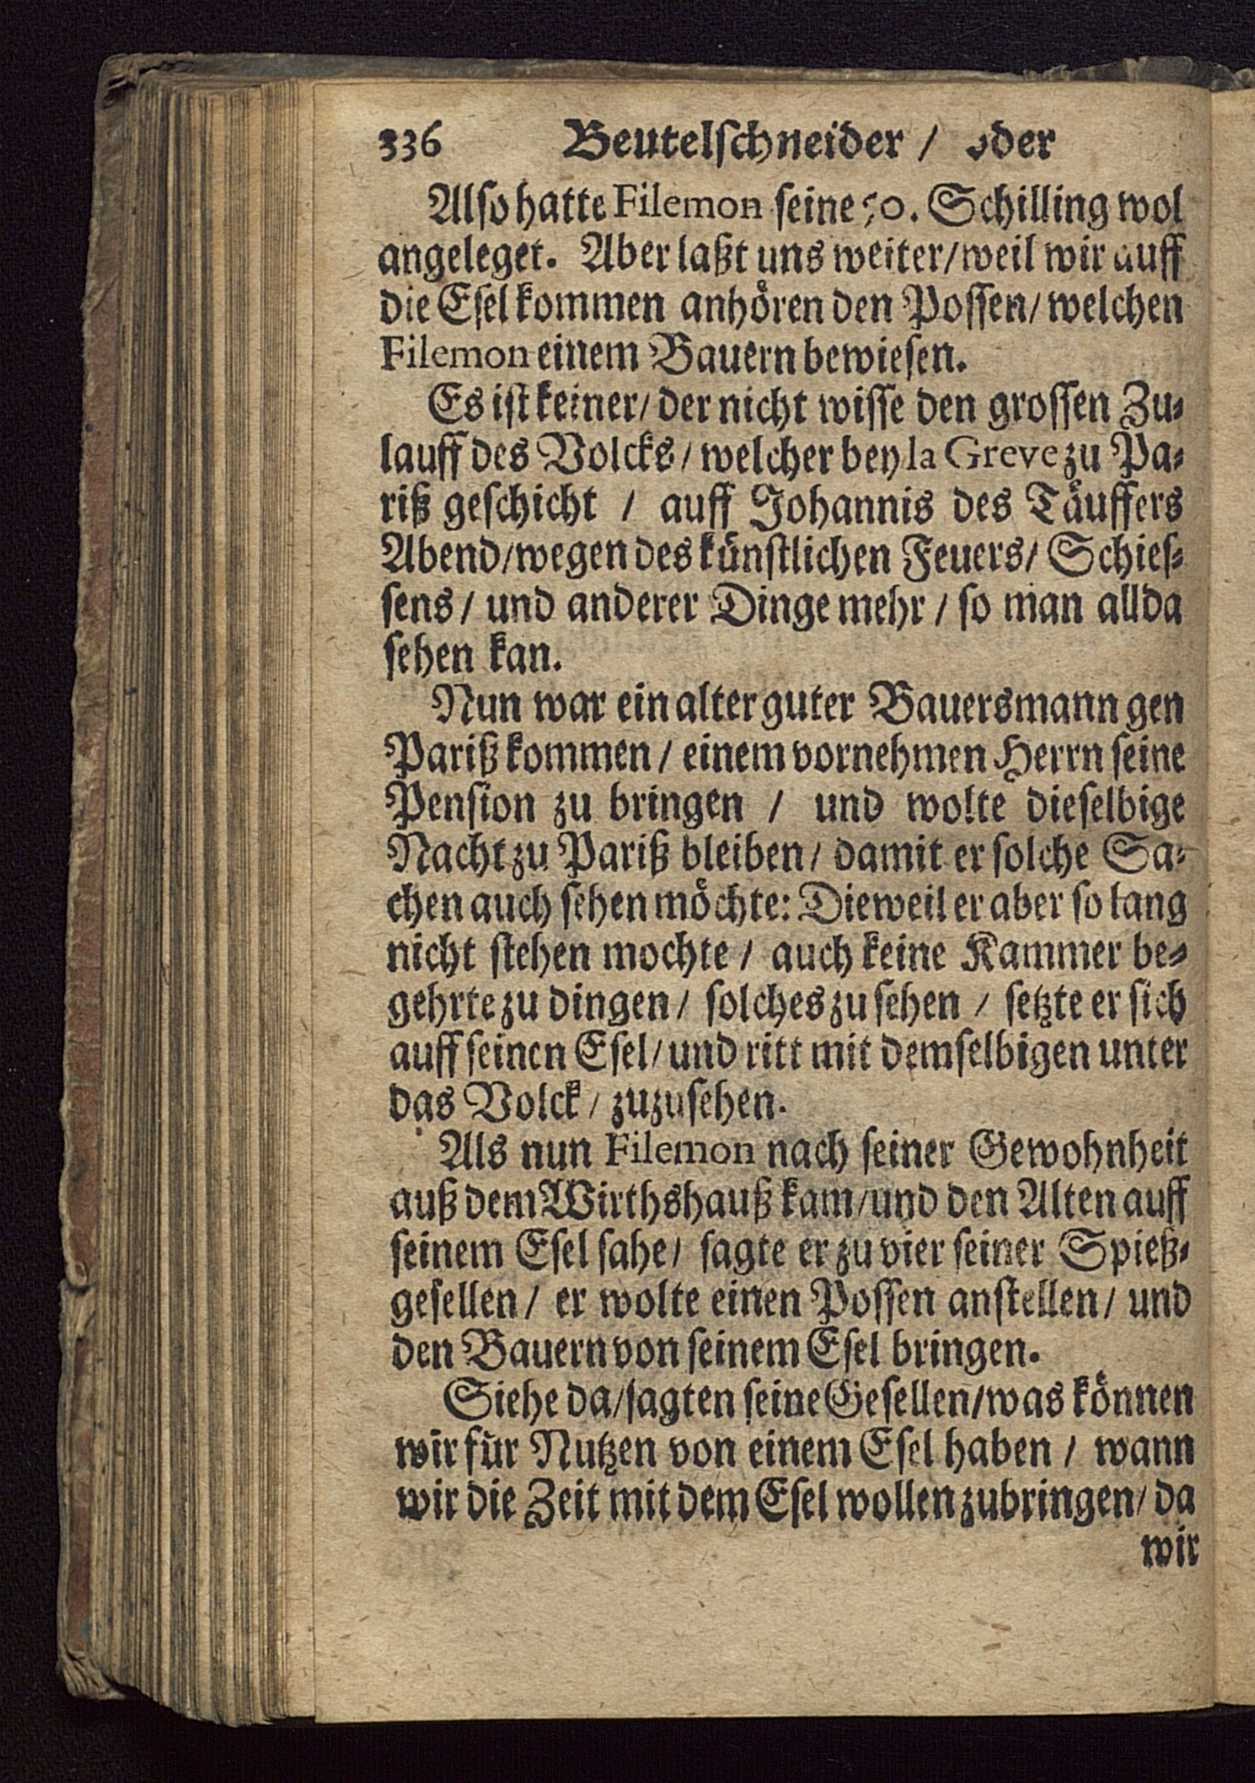 336 Beutelschneider / oder
Also hatte Filemon seine 50. Schilling wol
angeleget. Aber laßt uns weiter/weil wir auff
die Esel kommen anhören den Possen/ welchen
Filemon einem Bauern bewiesen.
Es ist keiner/ der nicht wisse den grossen Zu-
lauff des Volcks/ welcher bey la Greve zu Pa-
riß geschicht / auff Johannis des Täuffers
Abend/wegen des künstlichen Feuers/ Schies-
sens/ und anderer Dinge mehr/ so man allda
sehen kan.
Nun war ein alter guter Bauersmann gen
Pariß kommen/ einem vornehmen Herrn seine
Pension zu bringen / und wolte dieselbige
Nacht zu Pariß bleiben/ damit er solche Sa-
chen auch sehen möchte: Dieweil er aber so lang
nicht stehen mochte/ auch keine Kammer be-
gehrte zu dingen/ solches zu sehen / setzte er sich
auff seinen Esel/und ritt mit demselbigen unter
das Volck/ zuzusehen.
Als nun Filemon nach seiner Gewohnheit
auß dem Wirthshauß kam/und den Alten auff
seinem Esel sahe/ sagte er zu vier seiner Spieß-
gesellen/ er wolte einen Possen anstellen/ und
den Bauern von seinem Esel bringen.
Siehe da/sagten seine Gesellen/was können
wir für Nutzen von einem Esel haben / wann
wir die Zeit mit dem Esel wollen zubringen/ da
wir